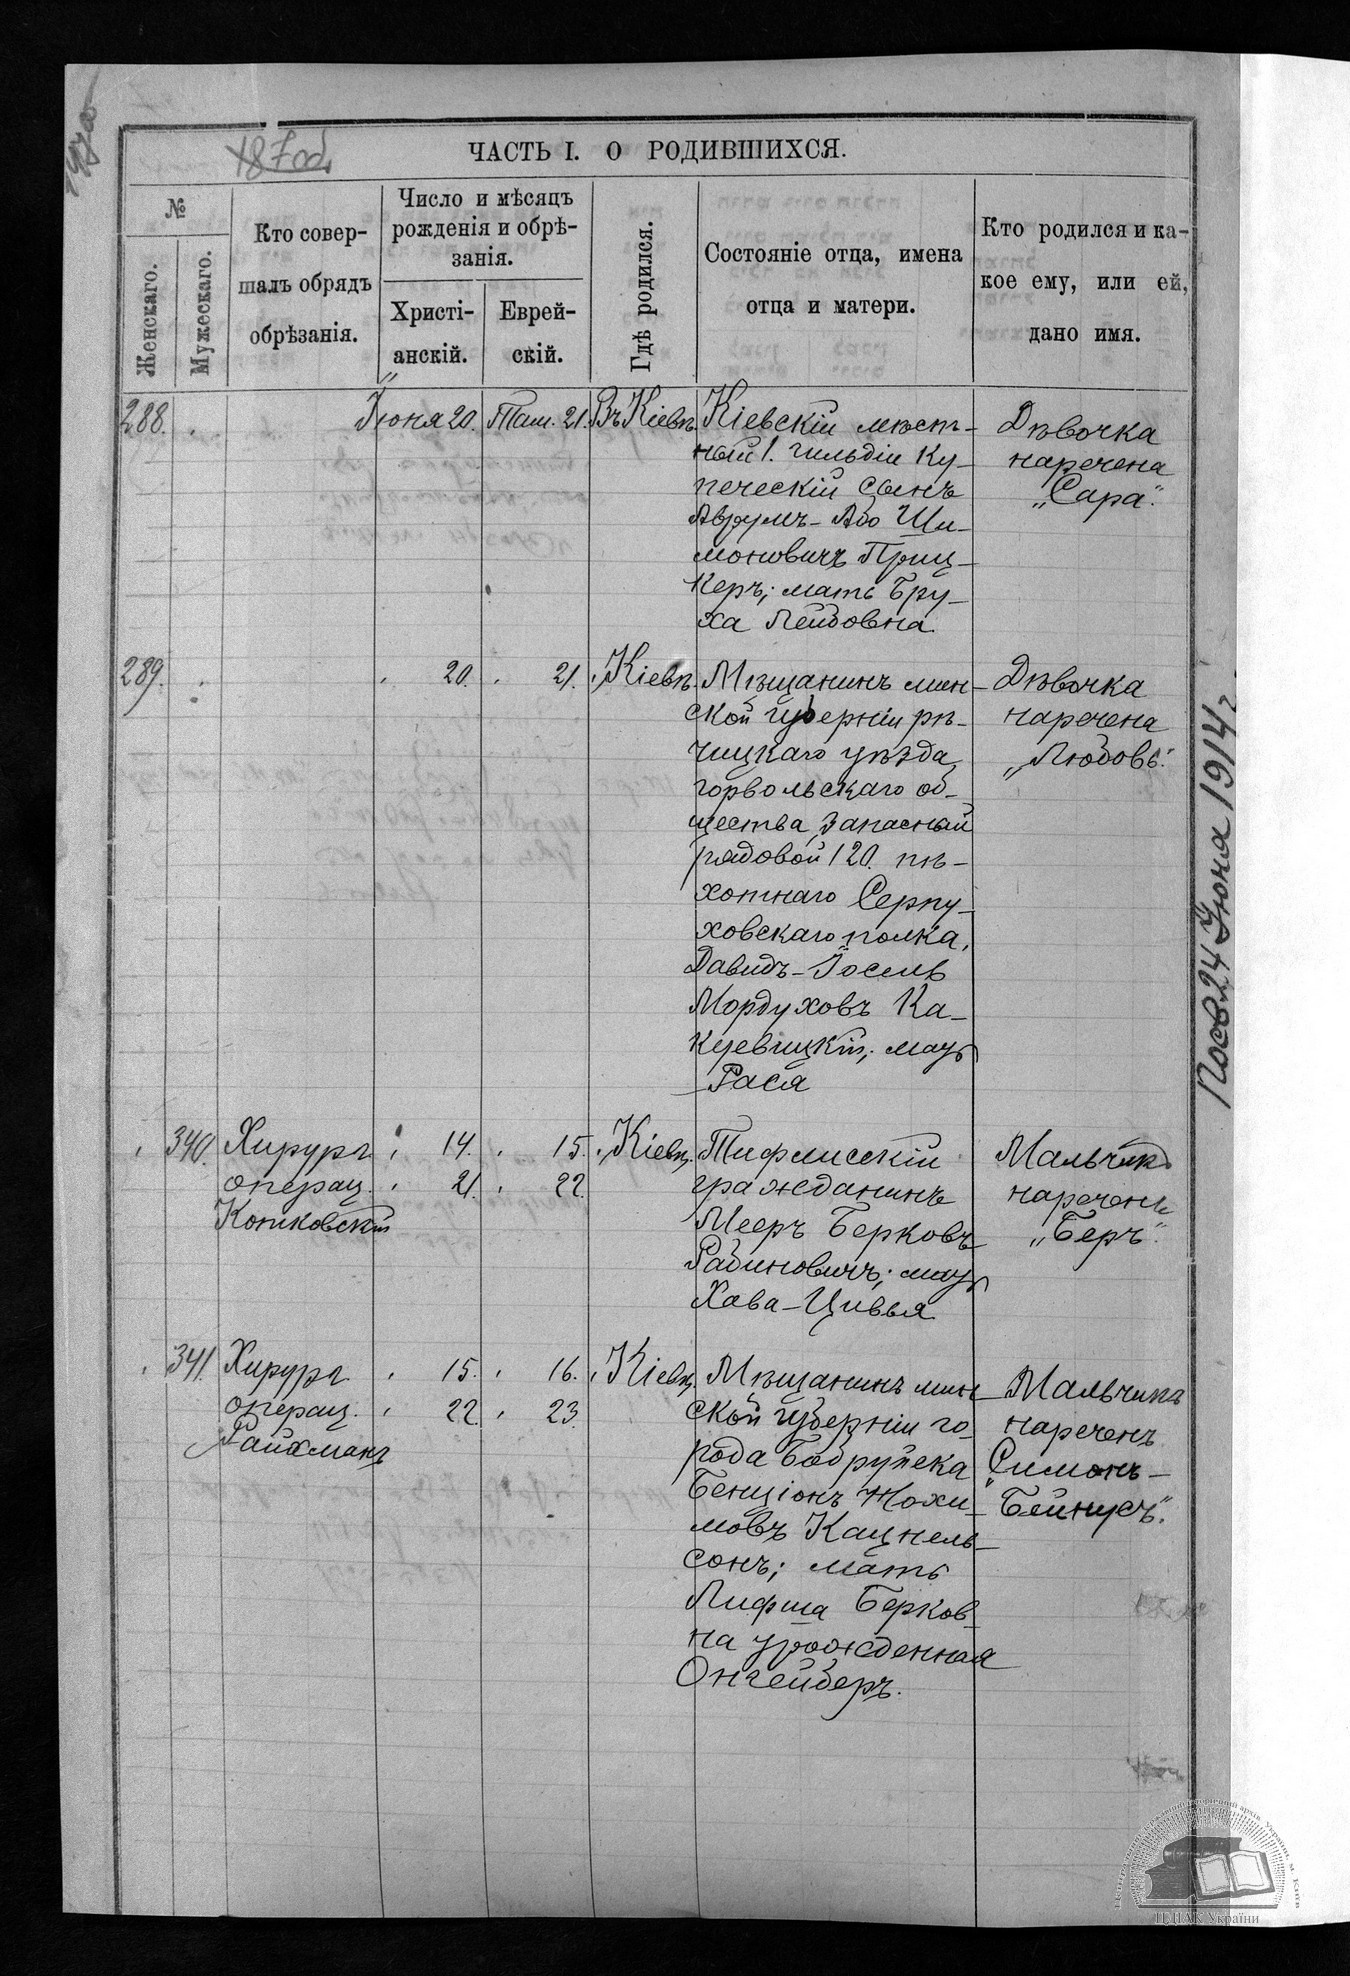 ЧАСТЬ I. О РОДИВШИХСЯ.
№
Женскаго.
Мужескаго.
Кто совер-
шалъ обрядъ
обрѣзанія.
Число и мѣсяцъ
рожденія и обрѣ-
занія.
Христі-
анскій.
Еврей-
скій.
Гдѣ родился.
Состояніе отца, имена
отца и матери.
Кто родился и ка-
кое ему, или ей,
дано имя.
288. Іюня 20. Там. 21. Въ Кіевѣ
Кіевскій мѣст-
ный 1. гильдіи ку-
печескій сынъ
Аврумъ-Або Ши-
моновичъ Приц-
керъ; мать Бру-
ха Лейбовна.
Дѣвочка
наречена
„Сара".
289. 20. 21. Кіевѣ
Мѣщанинъ мин-
ской губерніи рѣ-
чицкаго уѣзда,
горвольскаго об-
щества, запасный
рядовой 120. пѣ-
хотнаго Серпу-
ховскаго полка,
Давидъ-Іосель
Мордуховъ Ка-
мать
Рася
Дѣвочка
наречена
„Любовь".
340. Хирургъ 14. 15. Кіевѣ
операц. 21. 22.
Котковскій
Тифлисскій
гражданинъ
Мееръ Берковъ
Рабиновичъ; мать
Хава-Цивья
Мальчикъ
нареченъ
„Беръ".
341. Хирургъ 15. 16. Кіевѣ
операц. 22. 23.
Райхманъ
Мѣщанинъ мин-
ской губерніи го-
рода Бобруйска
Бенціонъ Нохи-
мовъ Кацнель-
сонъ; мать
Лифша Берков-
на урожденная
Онгейберъ.
Мальчикъ
нареченъ
„Симонъ-
Бейнусъ".
24 Іюня 1914 г.
ЦДІАК України